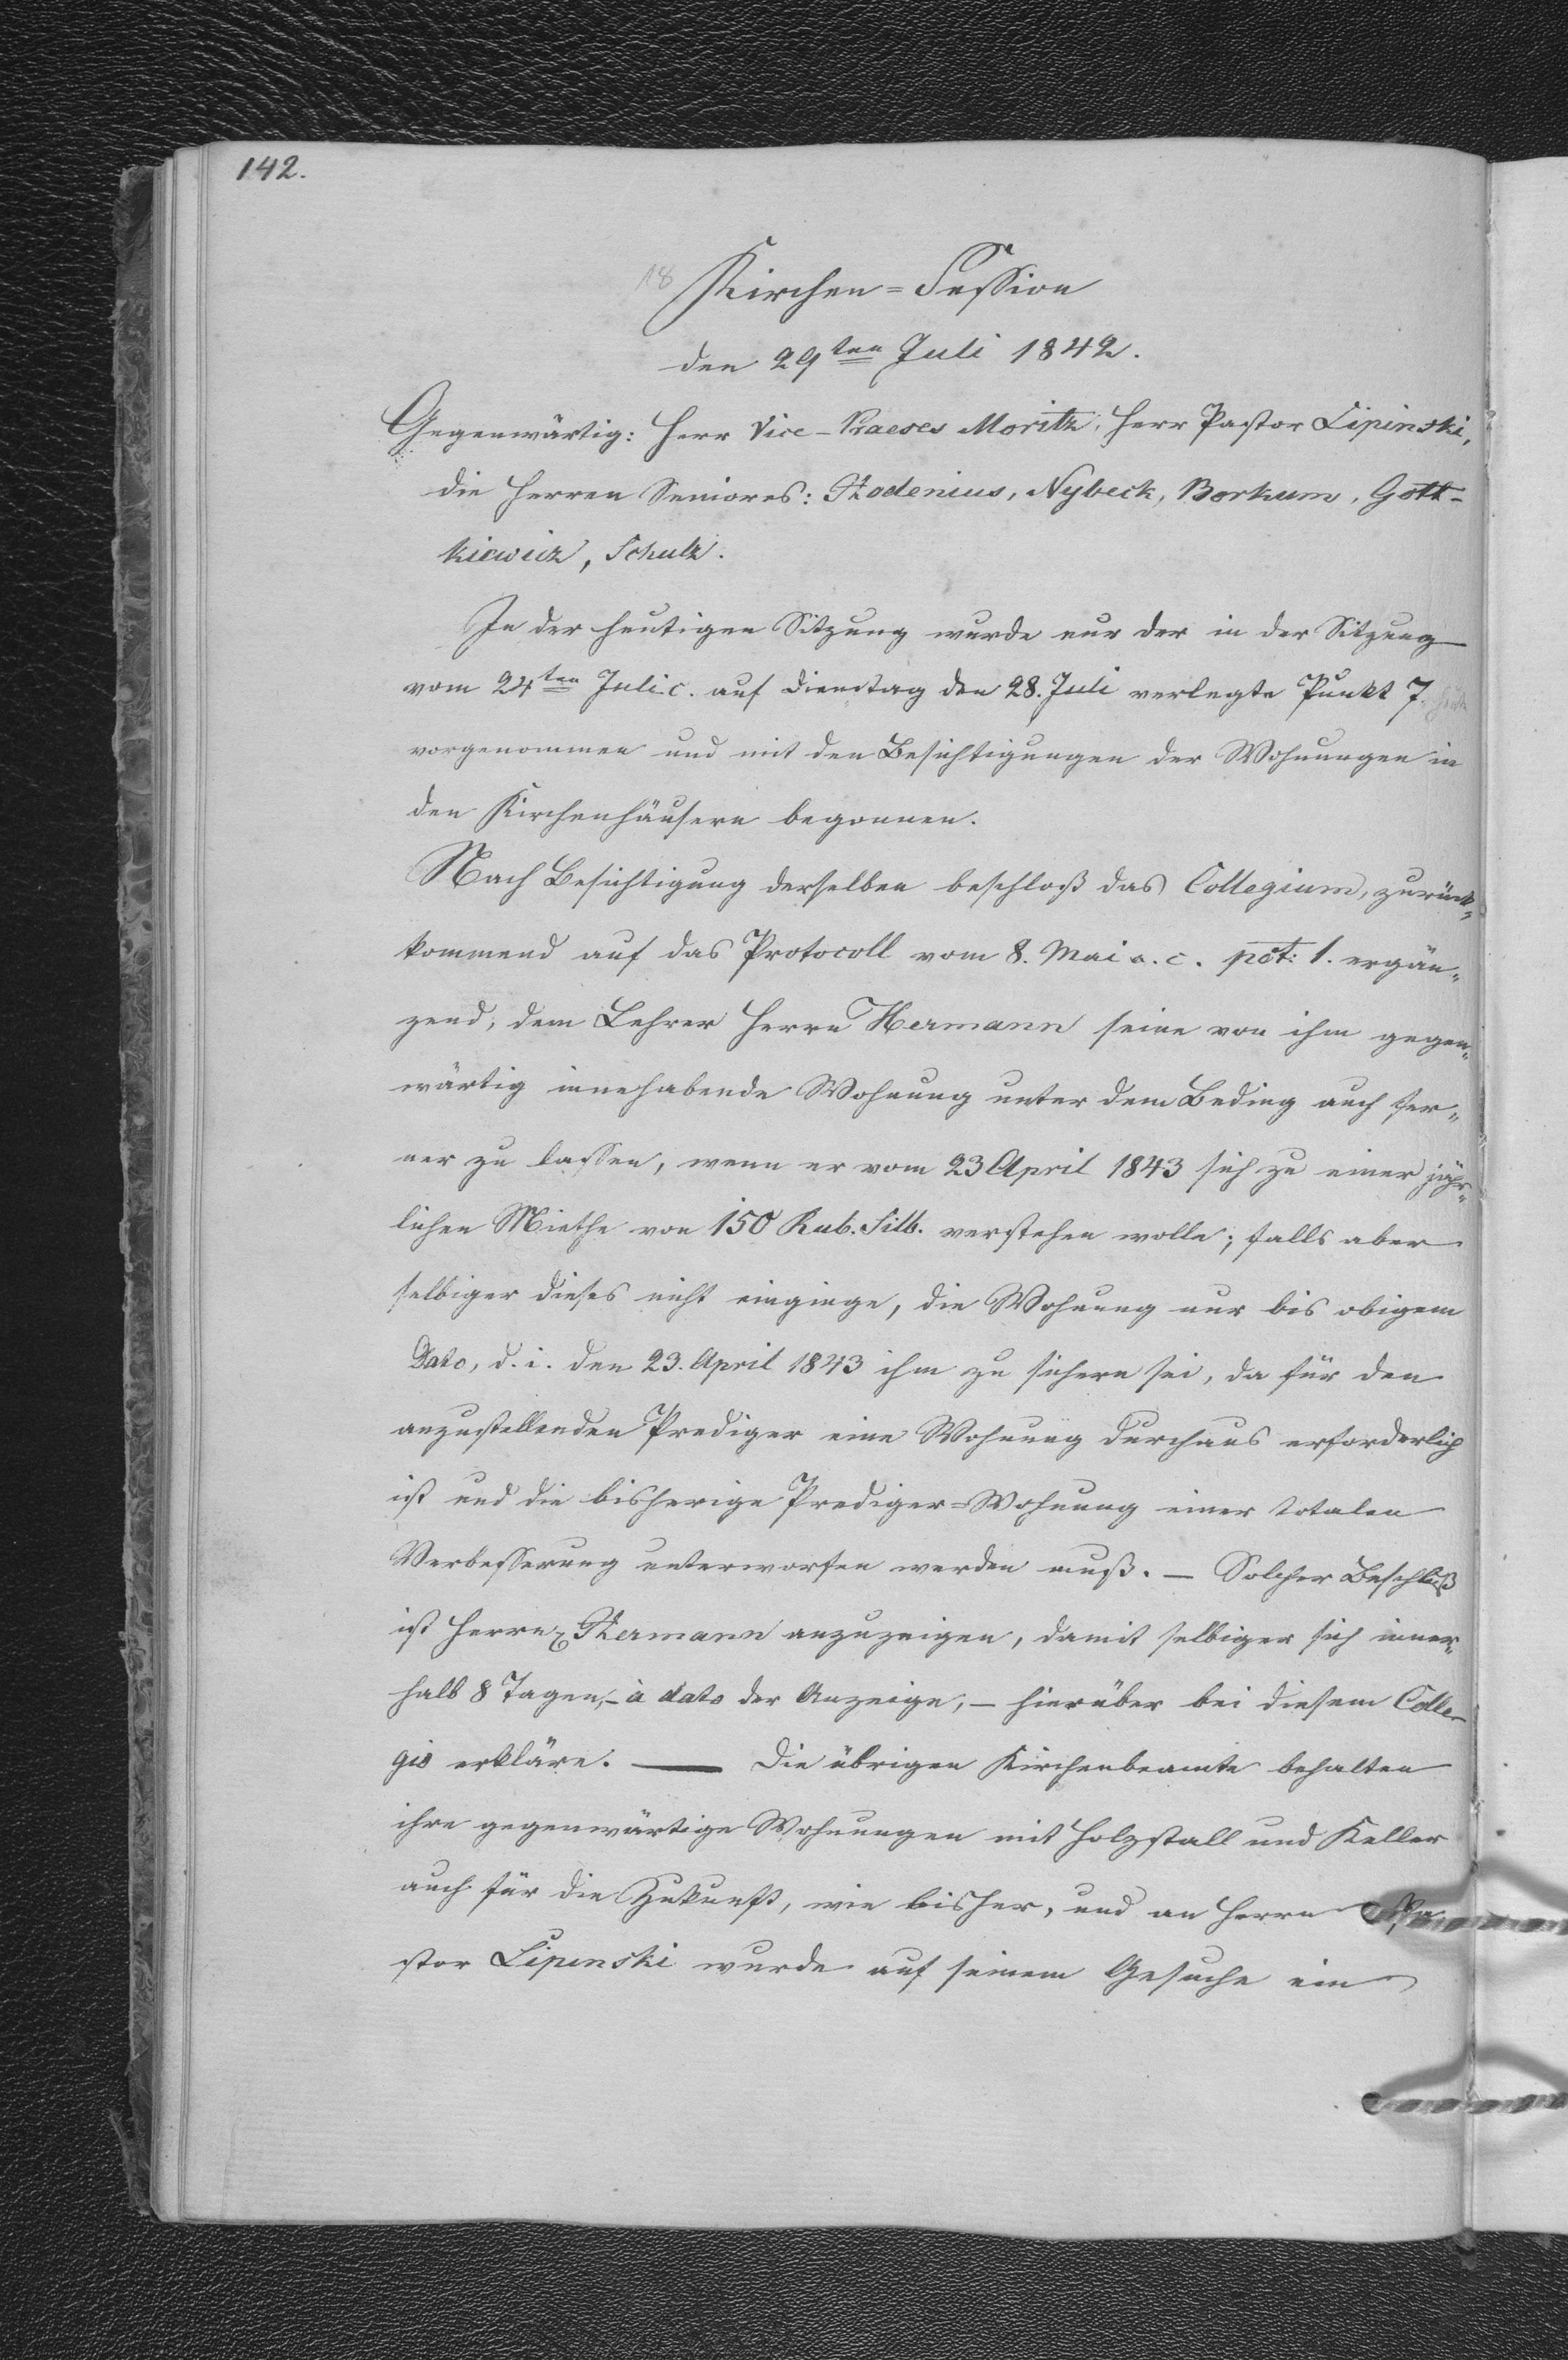 142.
18 Kirchen=Session
den 29ten Juli 1842.
Gegenwärtig: Herr Vice-Praeses Moritz, Herr Pastor Lipinski,
die Herren Seniores: Hodenius, Nybeck, Borkum, Gott-
kiewicz, Schulz.
In der heutigen Sitzung wurde nur der in der Sitzung
vom 24ten Juli c. auf Dienstag den 28. Juli verlegte Punkt 7.
vorgenommen und mit den Besichtigungen der Wohnungen in
den Kirchenhäusern begonnen.
Nach Besichtigung derselben beschloß das Collegium, zurück-
kommend auf das Protocoll vom 8. Mai a. c. pct: 1. ergän-
zend, dem Lehrer Herrn Hermann seine von ihm gegen-
wärtig innehabende Wohnung unter dem Beding auch fer-
ner zu lassen, wenn er vom 23 April 1843 sich zu einer jähr-
lichen Miethe von 150 Rub. Silb. verstehen wolle; falls aber
selbiger dieses nicht einginge, die Wohnung nur bis obigem
Dato, d. i. den 23. April 1843 ihm zu sichern sei, da für den
anzustellenden Prediger eine Wohnung durchaus erforderlich
ist und die bisherige Prediger=Wohnung einer totalen
Verbesserung unterworfen werden muß. — Solcher Beschluß
ist Herrn Hermann anzuzeigen, damit selbiger sich inner-
halb 8 Tagen, – à dato der Anzeige, – hierüber bei diesem Colle-
gio erkläre. — Die übrigen Kirchenbeamte behalten
ihre gegenwärtige Wohnungen mit Holzstall und Keller
auch für die Zukunft, wie bisher, und an Herrn Pa-
stor Lipinski wurde auf seinem Gesuche ein